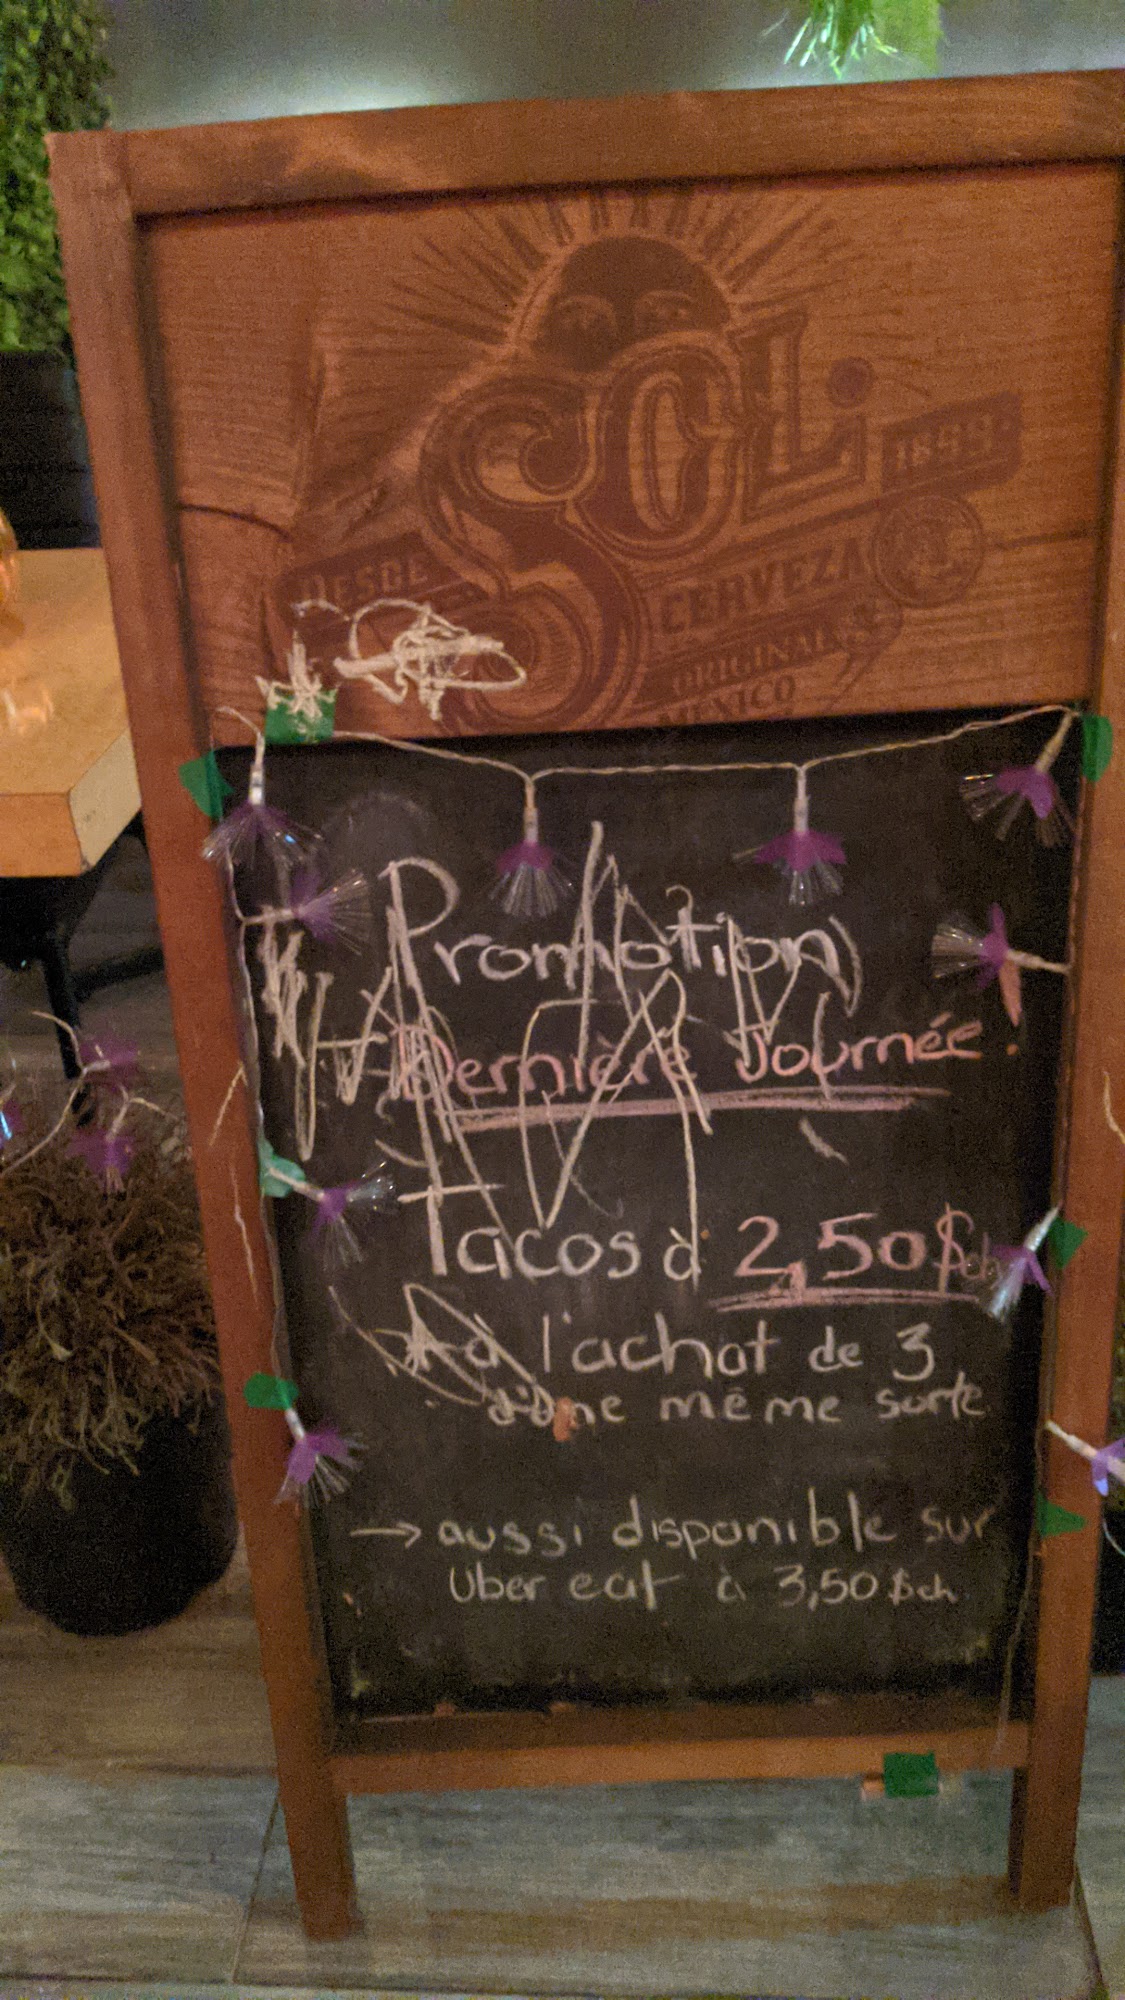 SOL
1899
DESDE
CERVEZA
ORIGINAL
MEXICO
Promotion
Dernière Journée.
Tacos à 2,50$ch
à l'achat de 3
d'une même sorte
→ aussi disponible sur
Uber eat à 3,50$ch